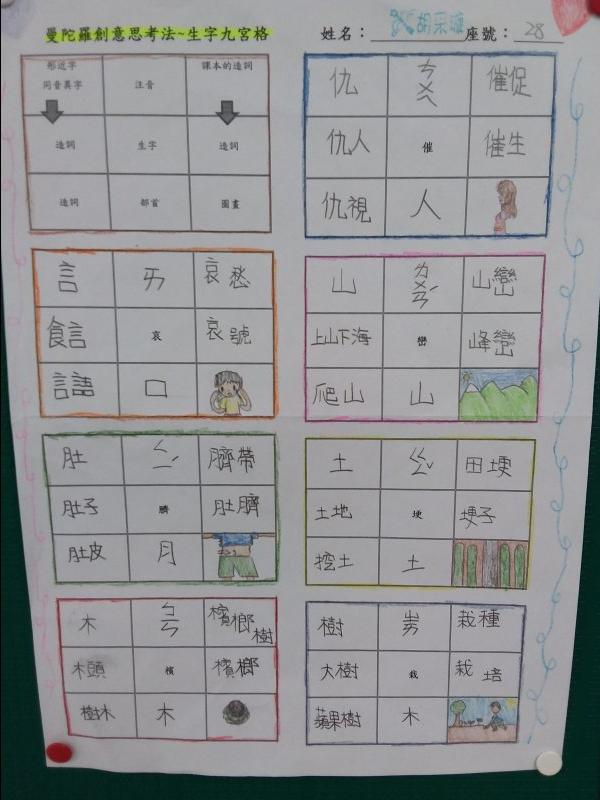 曼陀羅創意思考法~生字九宮格 姓名：胡采 座號：28
形近字
同音異字 注音 課本的造詞
造詞 生字 造詞
造詞 部首 圖畫
仇 ㄘㄨㄟ 催促
仇人 催 催生
仇視 人
言 ㄞ 哀愁
哀 哀號
口
山 ㄌㄨㄢˊ 山巒
上山下海 巒 峰巒
爬山 山
肚 ㄑㄧˊ 臍帶
肚子 臍 肚臍
肚皮 月
土 ㄍㄥˇ 田埂
土地 埂 埂子
挖土 土
木 ㄅㄧㄣ 檳榔樹
木頭 檳 檳榔
樹木 木
樹 ㄗㄞ 栽種
大樹 栽 栽培
蘋果樹 木